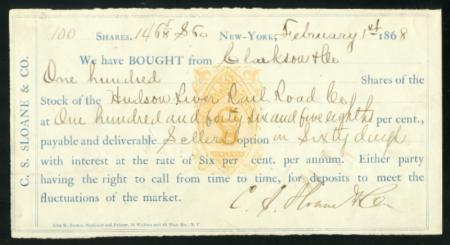 100 SHARES. 146 5/8 S60 NEW-YORK, February 1st 1868
We have BOUGHT from Clarkson & Co
One hundred Shares of the
Stock of the Hudson River Rail Road Co
at One hundred and forty six and five eighths per cent.,
payable and deliverable Sellers option in Sixty days
with interest at the rate of Six per cent. per annum. Either party
having the right to call from time to time, for deposits to meet the
fluctuations of the market.
C. S. Sloane & Co
C. S. SLOANE & CO.